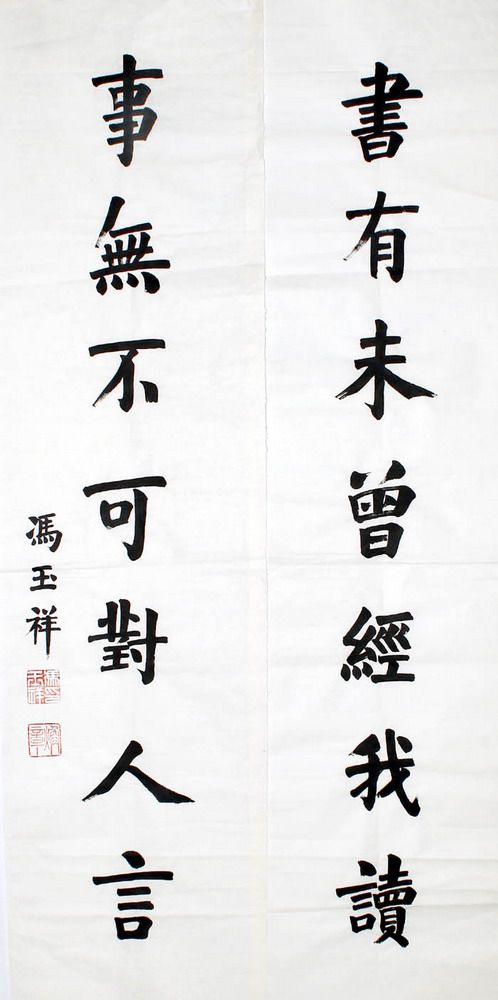 書有未曾經我讀
事無不可對人言
馮玉祥